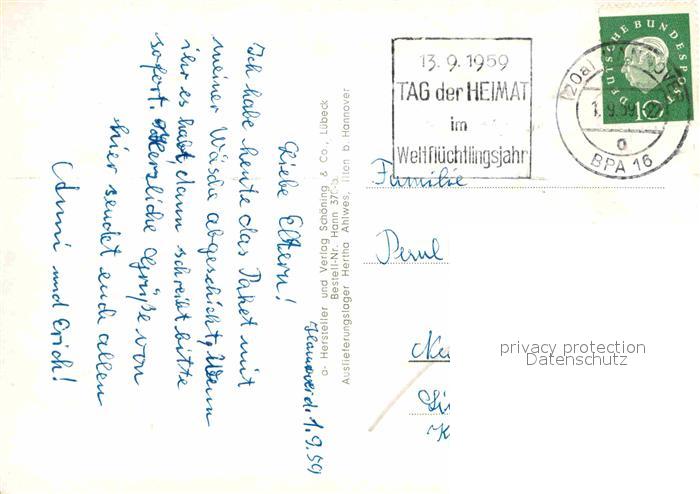 Hannover d. 1.9.59
Liebe Eltern!
Ich habe heute das Paket mit
meiner Wäsche abgeschickt, Wenn
ihr es habt, dann schreibt bitte
sofort. Herzliche Grüße von
hier sendet euch allen
Anni und Erich!
a- Hersteller und Verlag Schöning & Co., Lübeck
Bestell-Nr. Hann 37
Auslieferungslager Hertha Ahlwes, Ilten b. Hannover
13.9.1959
TAG der HEIMAT
im
Weltflüchtlingsjahr
(20a) HANNOVER
1.9.59
a
BPA 16
DEUTSCHE BUNDESPOST
10
Familie
privacy protection
Datenschutz